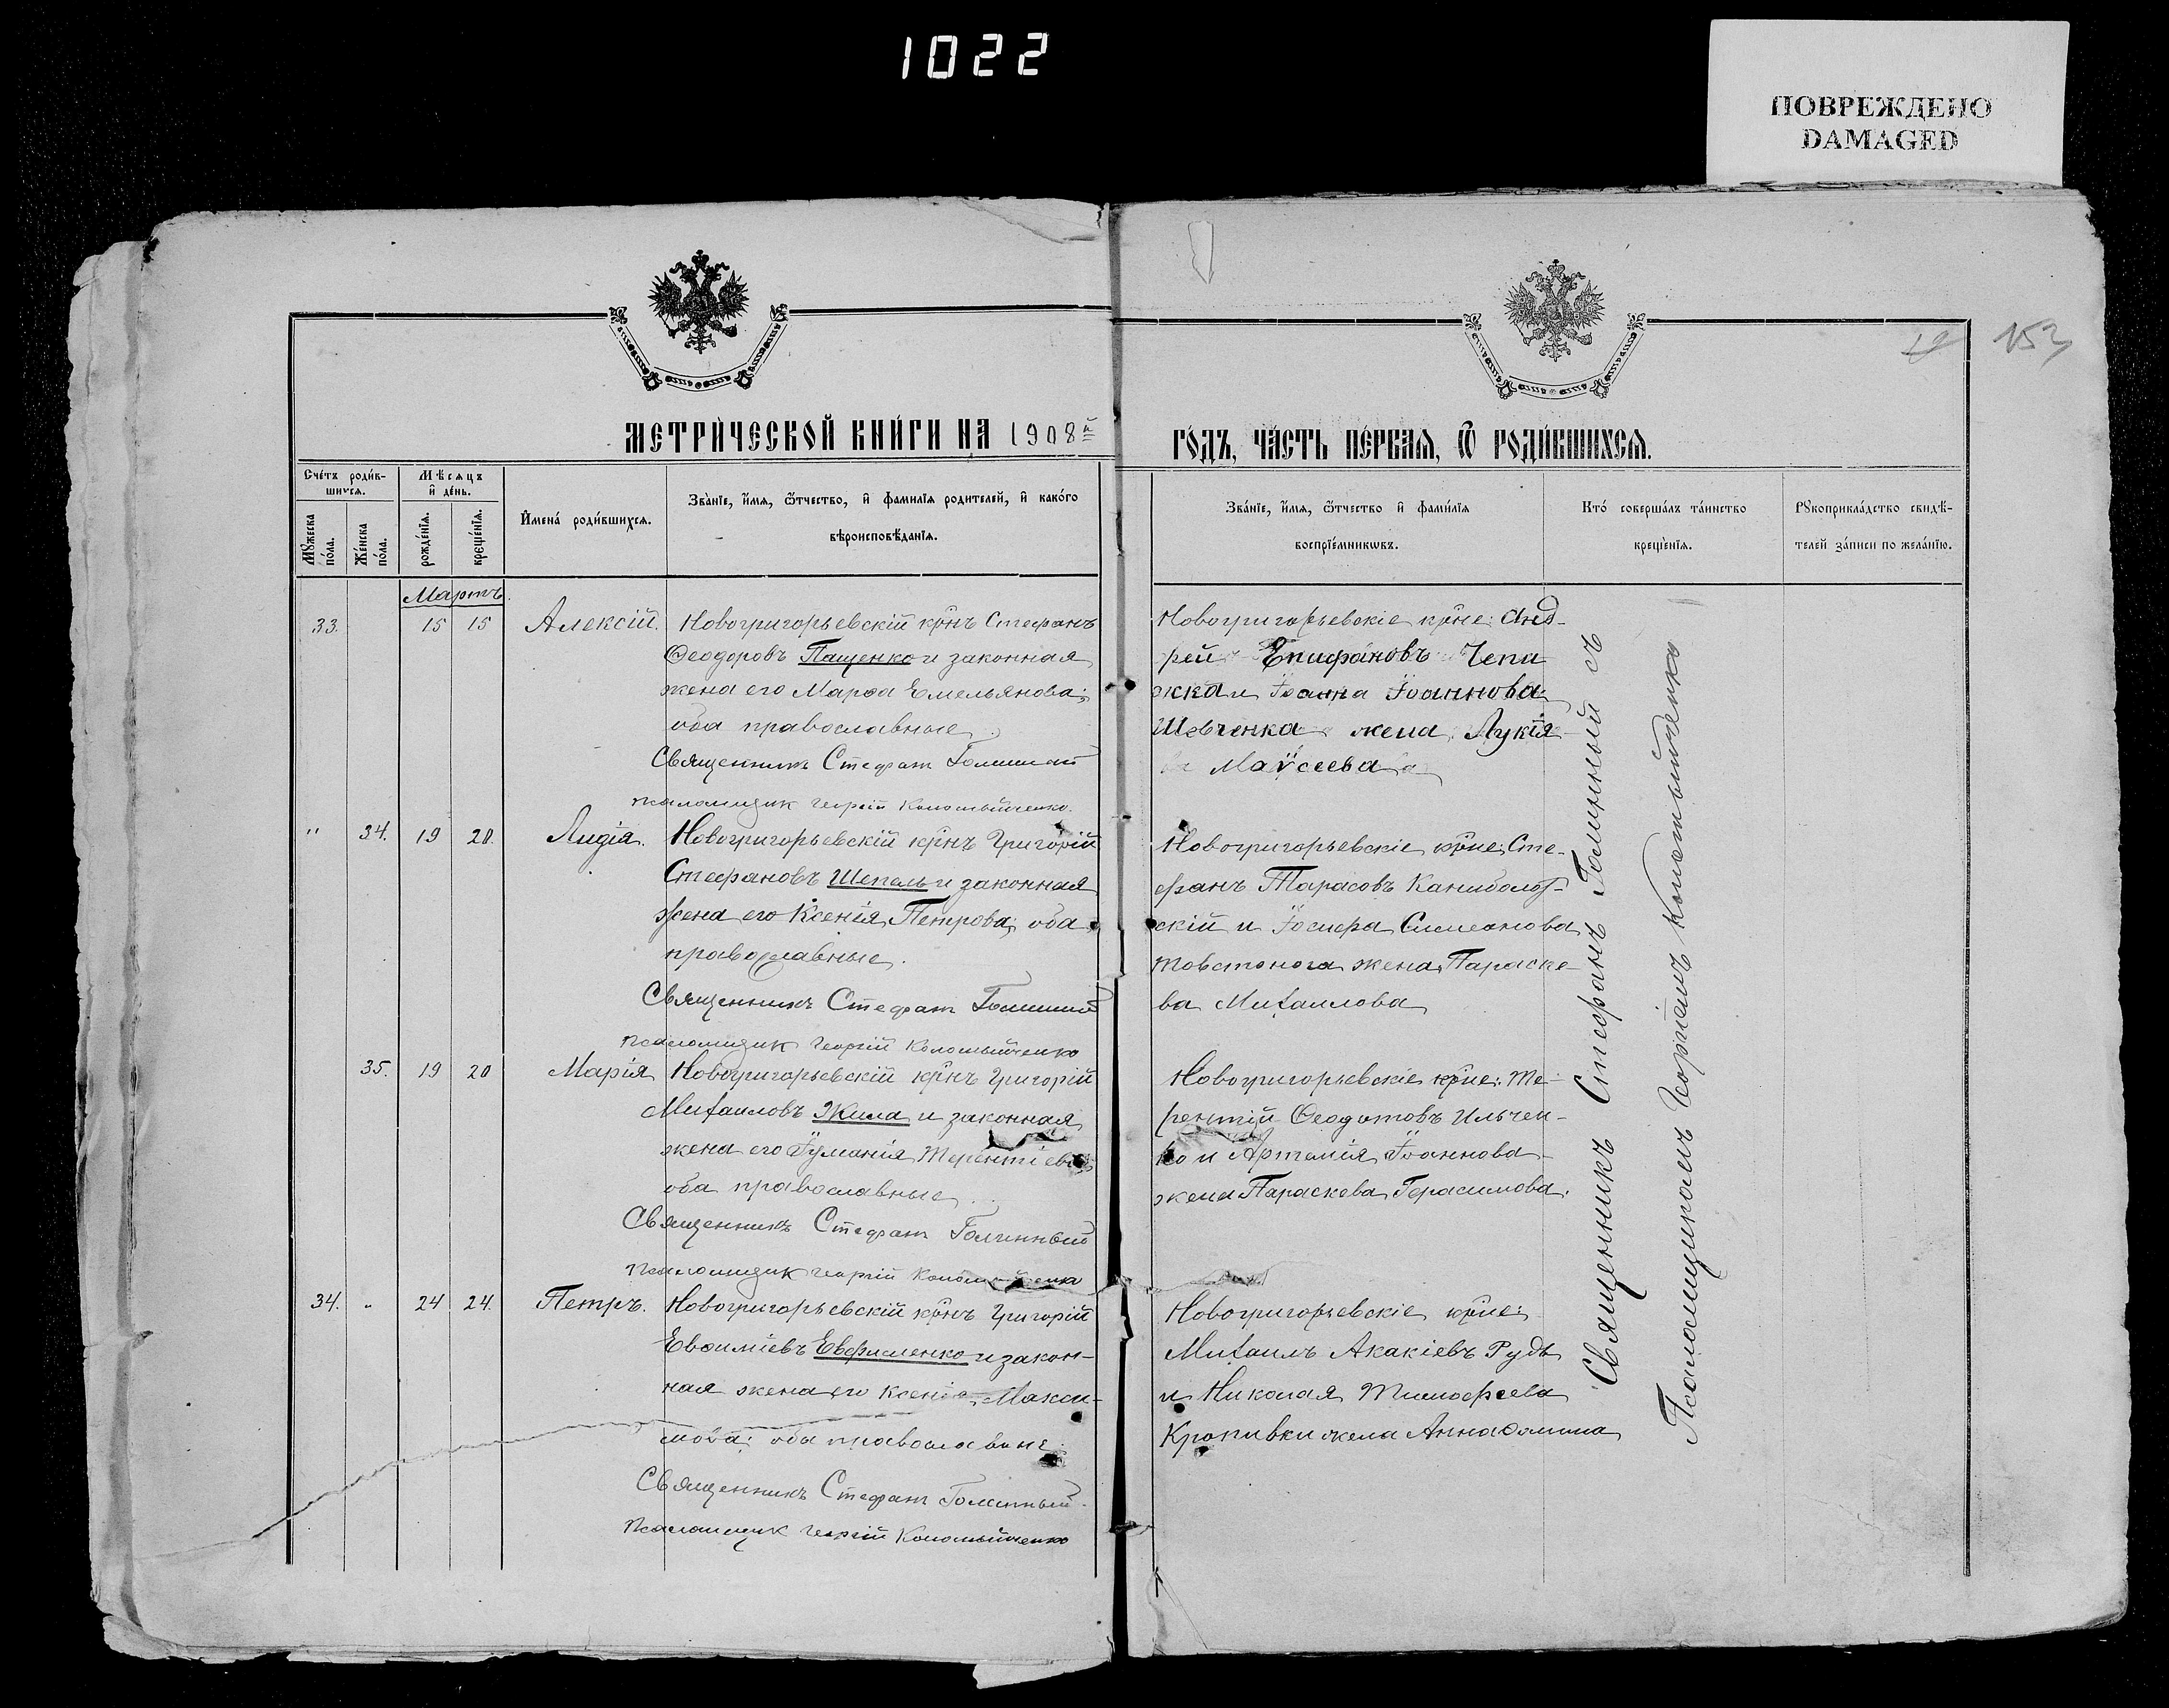 1022
ПОВРЕЖДЕНО
DAMAGED
19 153
МЕТРИ́ЧЕСКОЙ КНИ́ГИ НА 1908й
ГО́ДЪ, ЧА́СТЬ ПЕ́РВАѦ, Ѿ РОДИ́ВШИХСѦ.
Сче́тъ роди́в-
шихсѧ.
Мѣ́сѧцъ
и҆ де́нь.
Мꙋжеска по́ла.
Же́нска по́ла.
рожде́нїѧ.
креще́нїѧ.
И҆мена́ роди́вшихсѧ.
Зва́нїе, и҆́мѧ, ѻ҆́тчество, и҆ фами́лїѧ родителей, и҆ како́го
вѣроисповѣ́данїѧ.
Зва́нїе, и҆́мѧ, ѻ҆́тчество и҆ фами́лїѧ
воспрїе́мникѡвъ.
Кто́ соверша́лъ та́инство
креще́нїѧ.
Рꙋкоприкла́дство свидѣ́-
телей за́писи по жела́нїю.
Мартъ
33. 15 15 Алексій. Новогригорьевскій крнъ Стефанъ
Ѳеодоровъ Пащенко и законная
жена его Марѳа Емельянова;
оба православные.
Священникъ Стефан Голинный
псаломщик Георгій Коломыйченко.
Новогригорьевскіе крне: Анд-
рей Епифановъ Чепа
жка и Іоанна Іоаннова
Шевченка жена Лукія
Маѵсеева
" 34. 19 20. Лидія. Новогригорьевскій крнъ Григорій
Стефановъ Шепель и законная
жена его Ксенія Петрова; оба
православные.
Священникъ Стефан Голинный
псаломщик Георгій Коломыйченко
Новогригорьевскіе крне: Сте-
фанъ Тарасовъ Каниболоц-
скій и Іосифа Симеонова
Товстонога жена Параске-
ва Михаилова
35. 19 20 Марія Новогригорьевскій крнъ Григорій
Михаиловъ Жила и законная
жена его Іуманія Терентіева
оба православные.
Священникъ Стефан Голинный
псаломщик Георгій Коломыйченко
Новогригорьевскіе крне: Те-
рентій Ѳеодотовъ Ильчен-
ко и Артемія Іоаннова
жена Параскева Герасимова.
34. " 24 24. Петръ. Новогригорьевскій крнъ Григорій
Евѳиміевъ Евфименко и закон-
ная жена его Ксенія Макси-
мова; оба православные.
Священникъ Стефан Голинный.
Псаломщик Георгій Коломыйченко
Новогригорьевскіе крне:
Михаилъ Акакіевъ Рудь
и Николая Тимофеева
Кропивки жена Анна Ѳомина
Священникъ Стефанъ Голинный съ
Псаломщикомъ Георгіемъ Коломыйченко